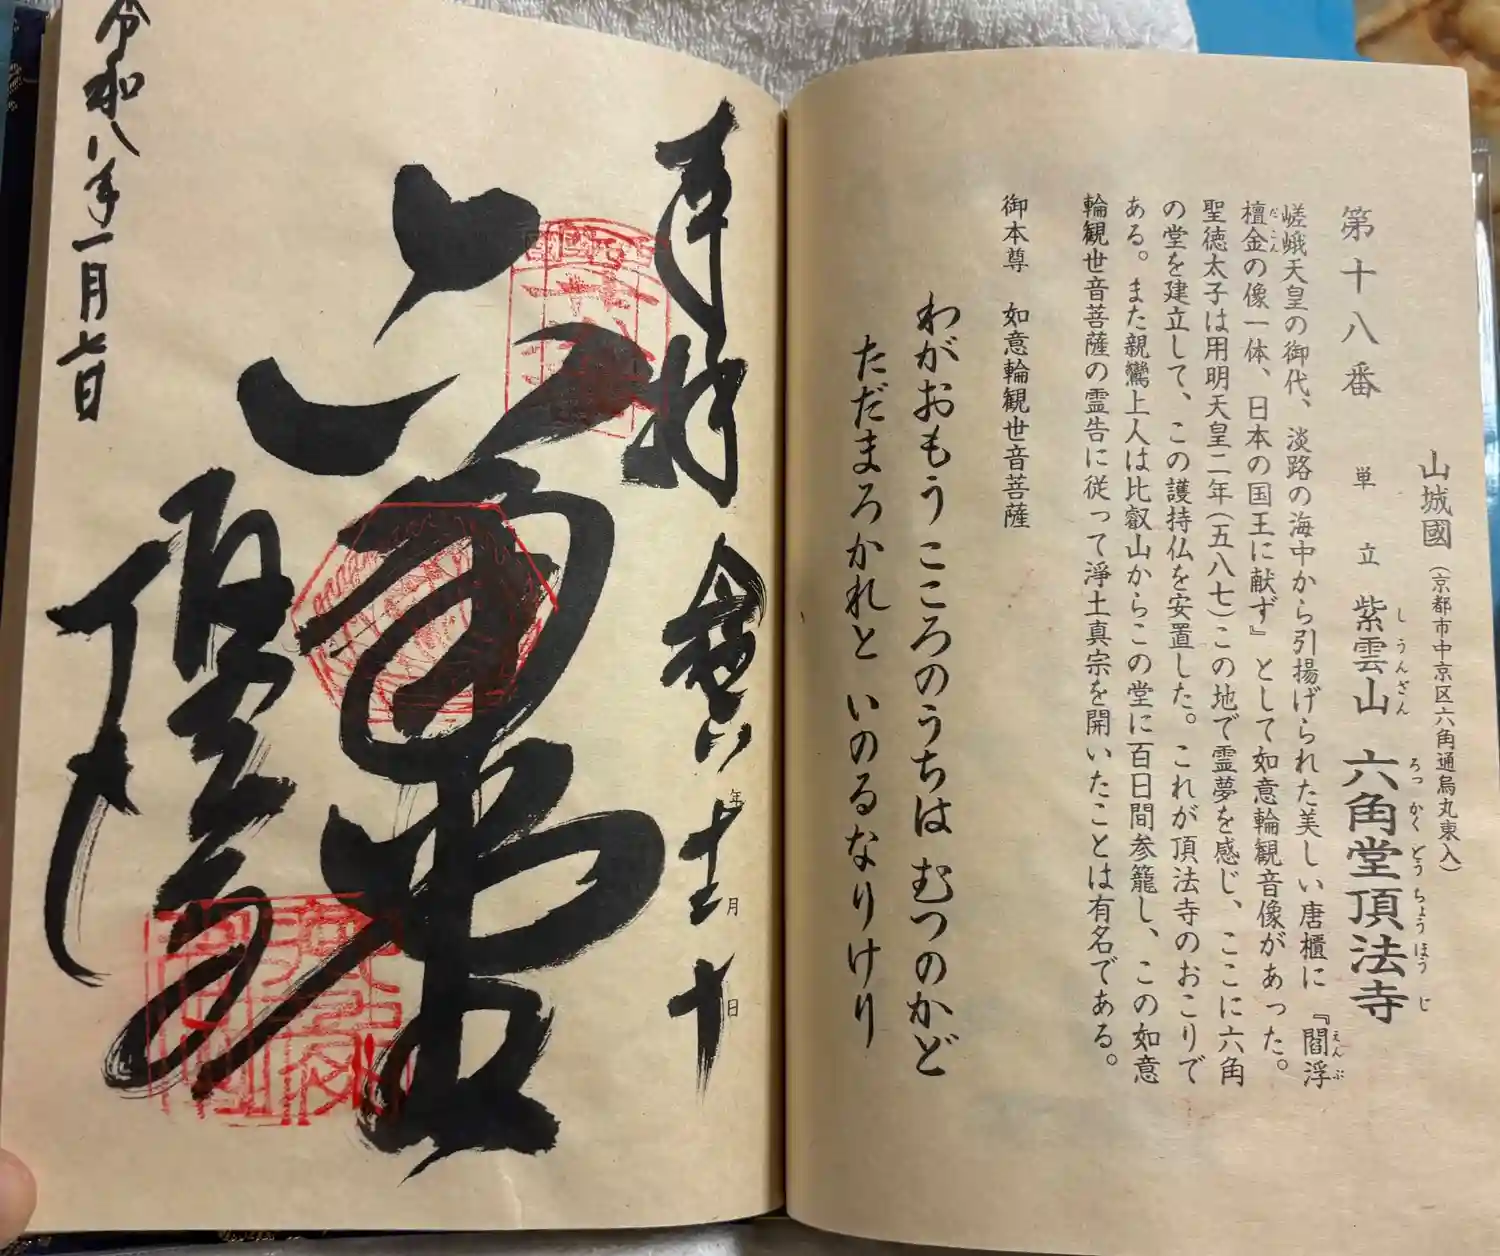 山城國（京都市中京区六角通烏丸東入）
第十八番 単立 紫雲山 六角堂頂法寺
しうんざん ろっかくどうちょうほうじ
嵯峨天皇の御代、淡路の海中から引揚げられた美しい唐櫃に『閻浮
えんぶ
檀金の像一体、日本の国王に献ず』として如意輪観音像があった。
だごん
聖徳太子は用明天皇二年（五八七）この地で霊夢を感じ、ここに六角
の堂を建立して、この護持仏を安置した。これが頂法寺のおこりで
ある。また親鸞上人は比叡山からこの堂に百日間参籠し、この如意
輪観世音菩薩の霊告に従って浄土真宗を開いたことは有名である。
御本尊 如意輪観世音菩薩
わがおもう こころのうちは むつのかど
ただまろかれと いのるなりけり
奉拝
年
月
日
六角堂
令和八年一月七日